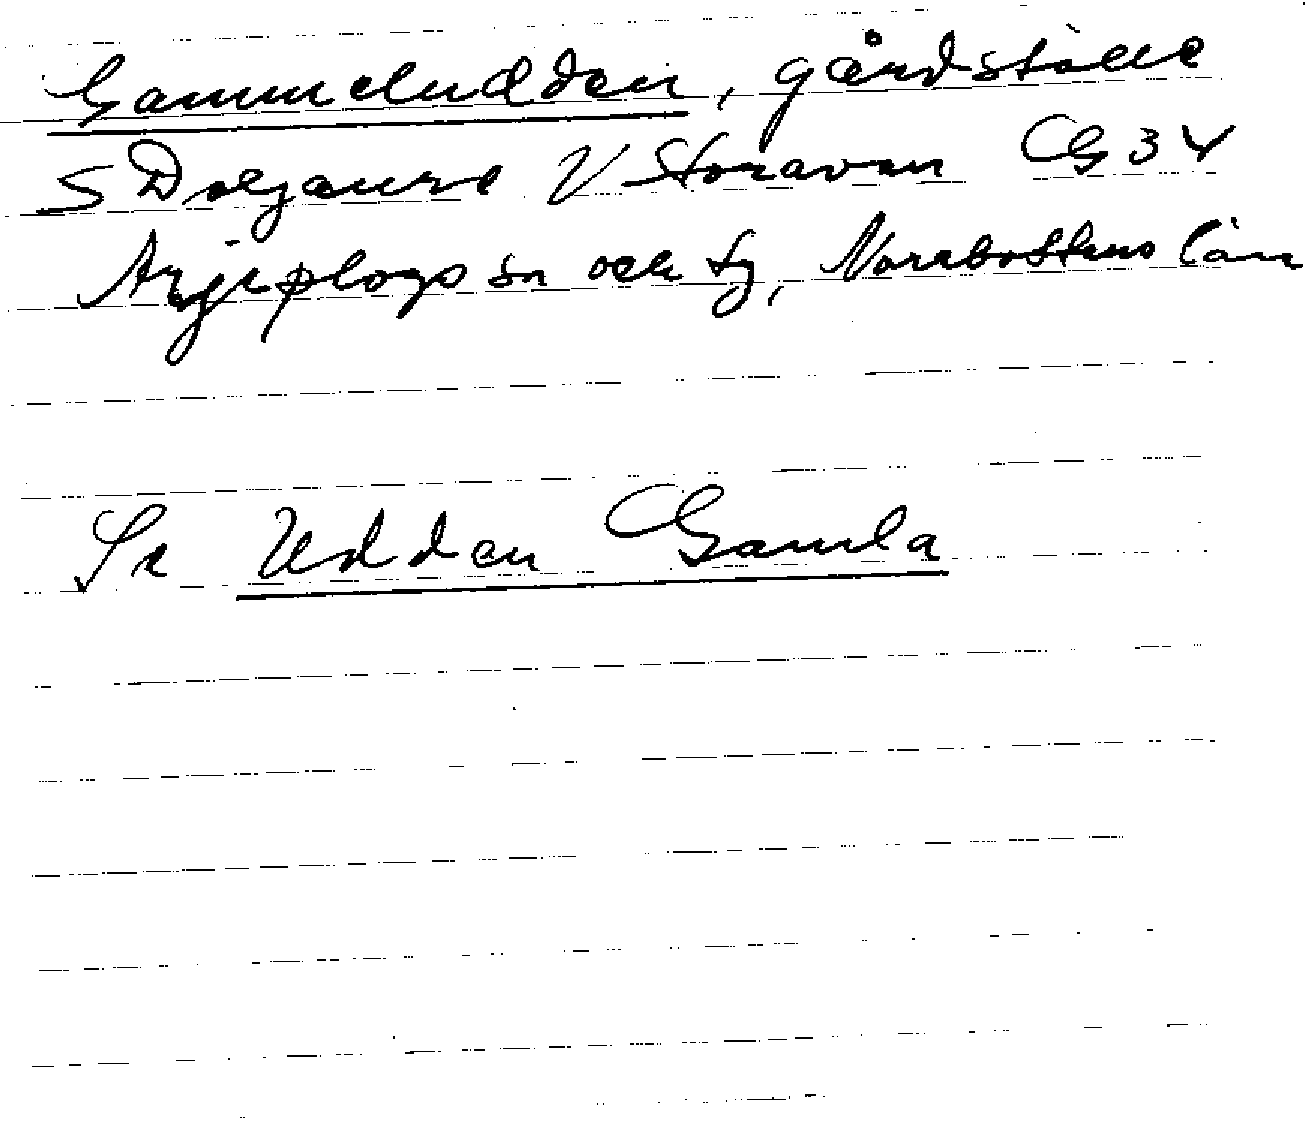 Gammeludden, gårdställe
S Doljaure V Storavan G34
Arjeplogs sn och tg, Norrbottens län
Se Udden Gamla